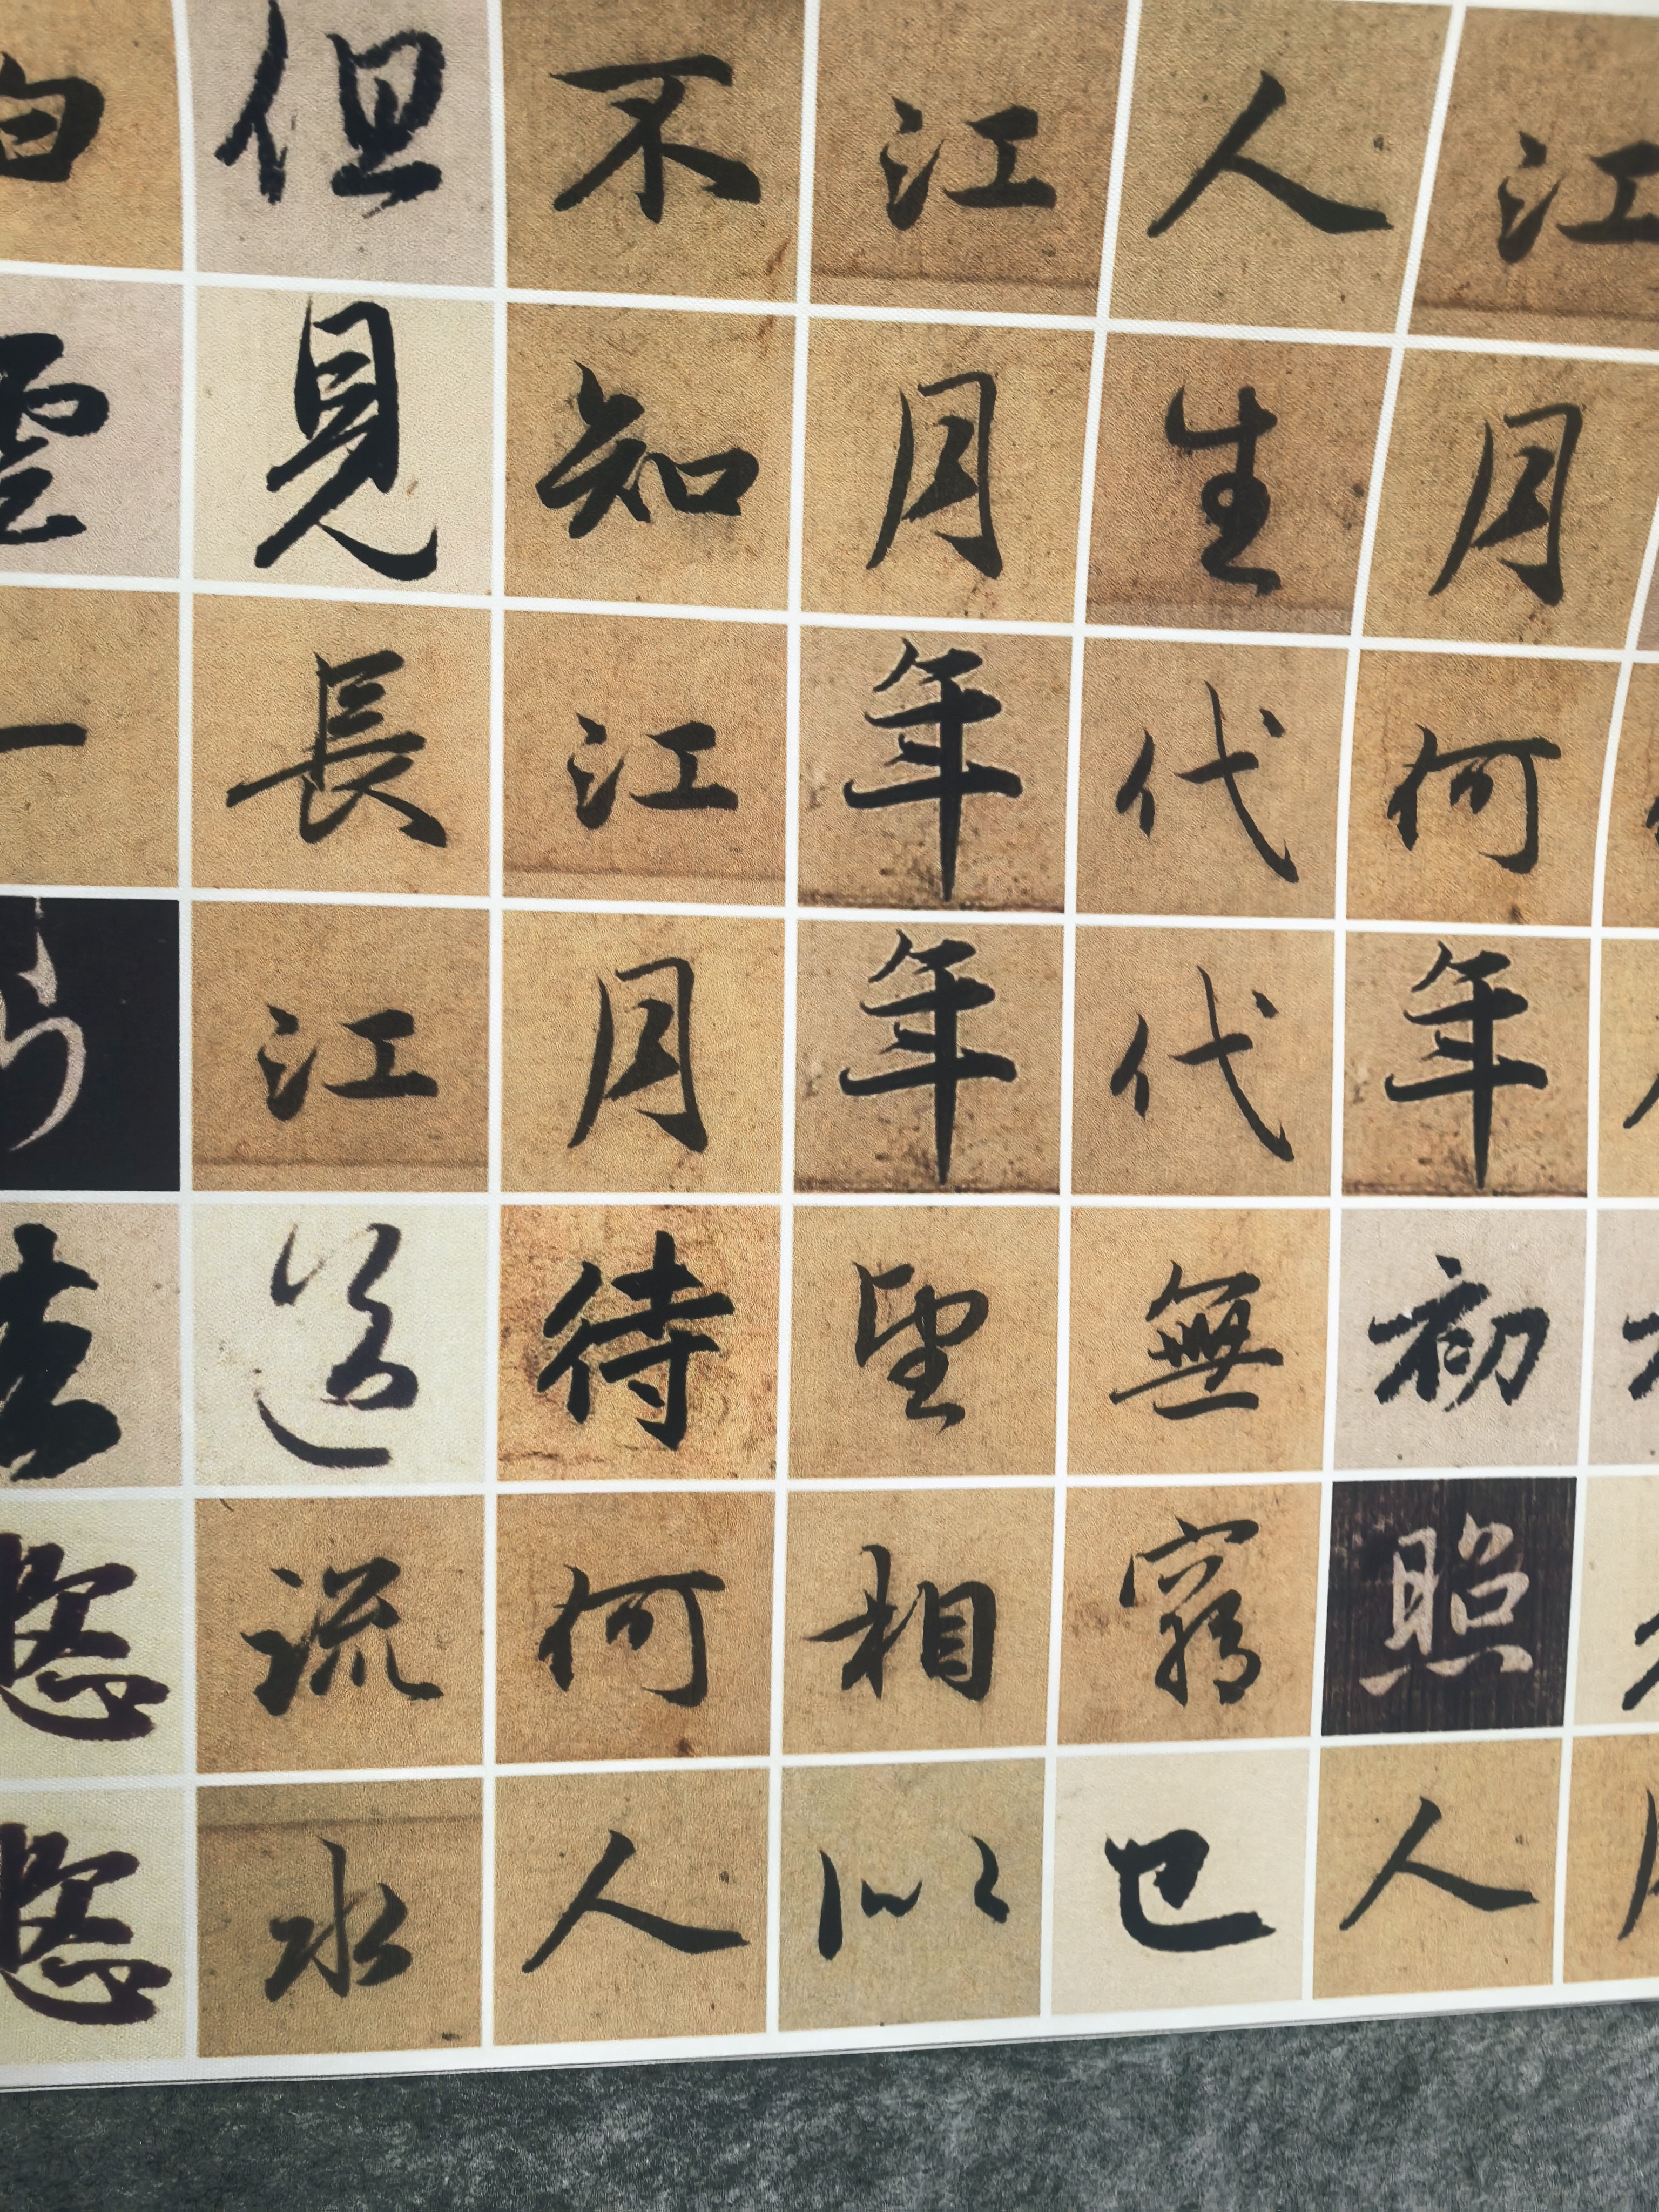 江月何年初照人
人生代代無窮已
江月年年望相似
不知江月待何人
但見長江送流水
白雲一去悠悠